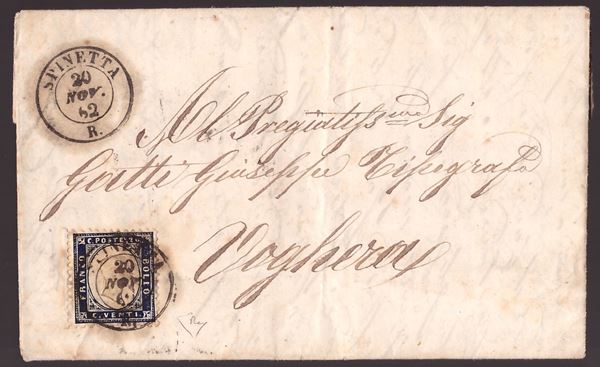 SPINETTA
20
NOV.
62
R.
Al Pregiatiss.mo Sig
Gatti Giuseppe Tipografo
Voghera
C. POSTE 20
FRANCO
BOLLO
C. VENTI.
SPINETTA
20
NOV
6